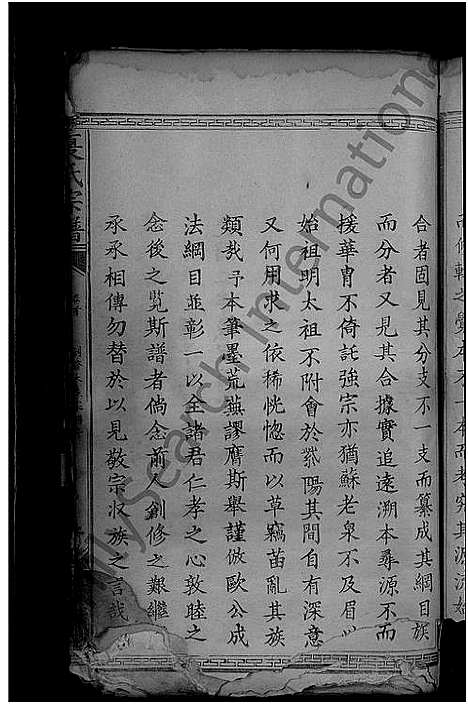 合者固見其分支不一支而纂成其綱目族
而分者又見其合據實追遠溯本尋源不而
援華冑不倚託強宗亦猶蘇老泉不及眉
始祖明太祖不附會於紫陽其間自有深意
又何用求之依稀恍惚而以草竊苗亂其族
類哉予本筆墨荒蕪謬膺斯舉謹倣歐公成
法綱目並彰一以全諸君仁孝之心敦睦之
念後之覧斯譜者倘念前人創修之艱繼
承承相傳勿替於以見敬宗收族之言哉
氏宗譜
MySearch International